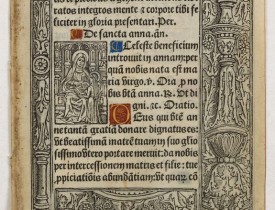 tatos integros mente ⁊ corpore tibi fe
liciter in gloria presentari. Per.
De sancta anna. an̄.
Celeste beneficium
introiuit in annam per
quā nobis nata est ma
ria virgo. v̄. Ora p̄ no
bis btā anna. R̄. Ut di
gni. ⁊c. Oratio.
Deus qui btē an
ne tantā gratiā donare dignatus es: vt
btissimā matrē tuam in suo glo
riosissimo vtero portare meruit: da nobis
per intercessionem matris et filie: tue
p̄piciatiōis abundātiam: vt quaꝝ cō